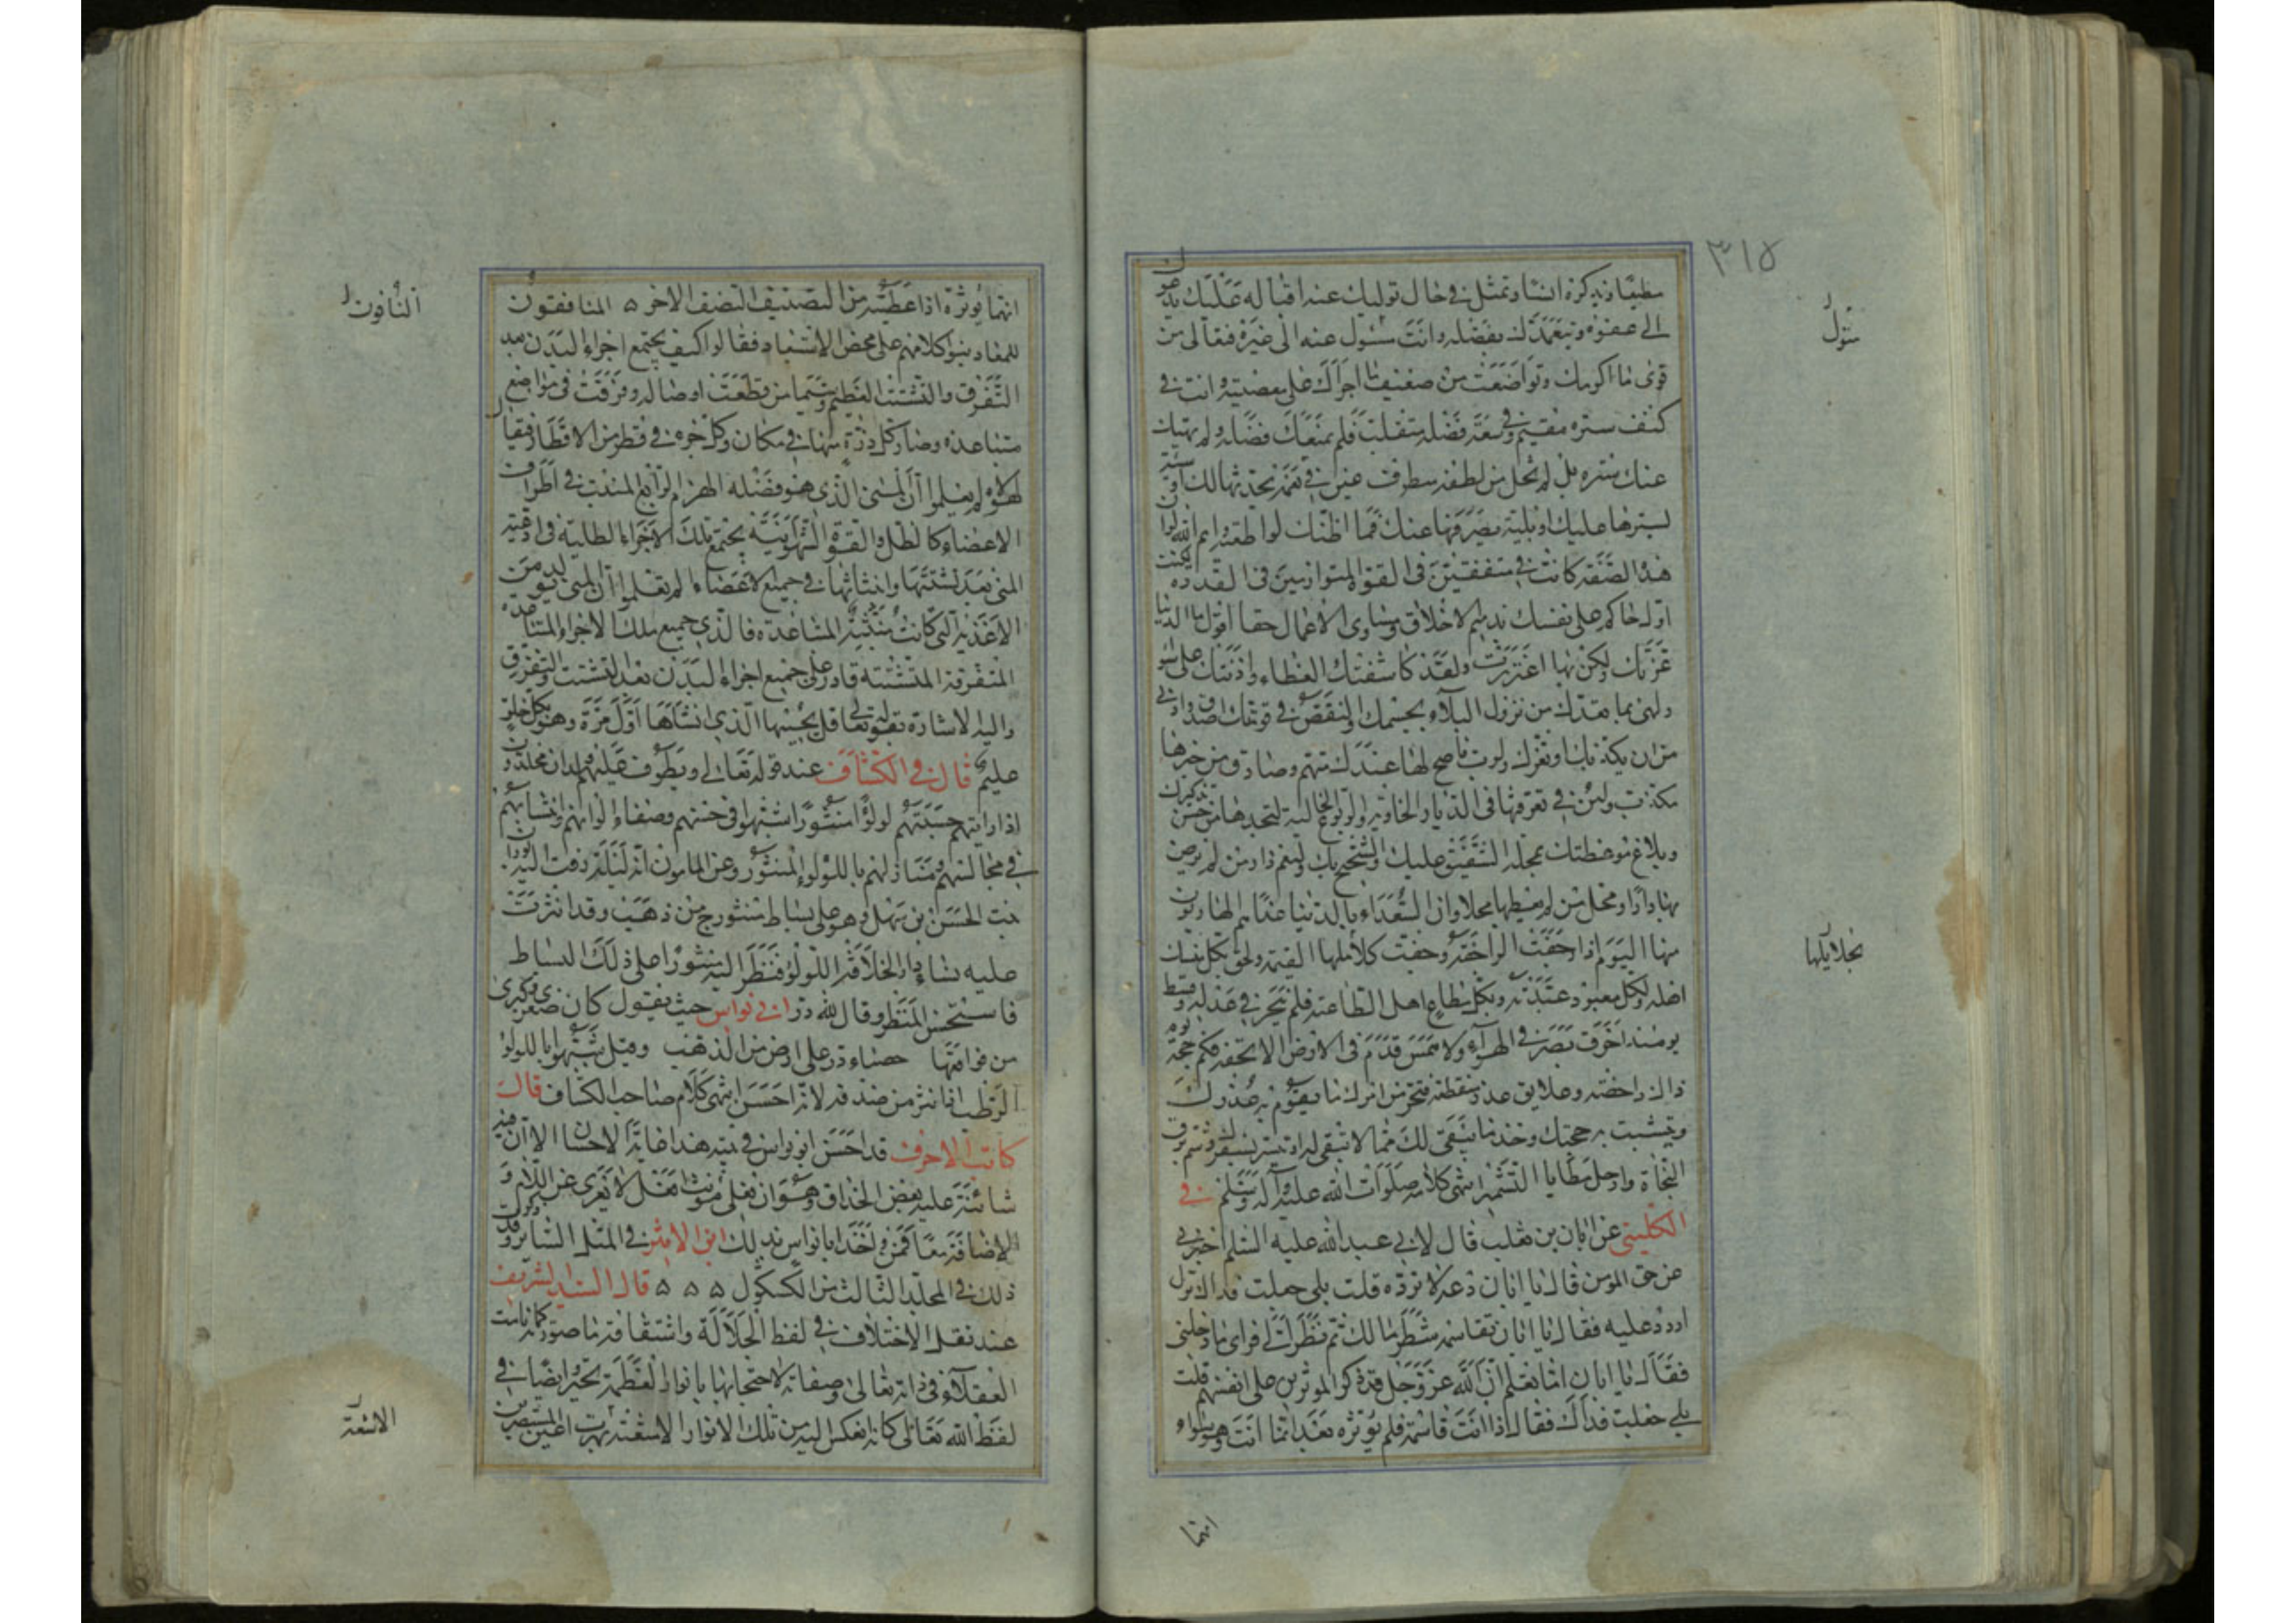 ٣١٥
مطيعا وبذكره انسا وتمثل في حال توليك عنه اقباله عليك يدعوك
الى عفوه ويتغمدك بفضله وانت متول عنه الى غيره فتعالى من
قوى ما اكرمك وتواضعت من ضعيف ما اجراك على معصيته وانت في
كنف ستره مقيم وفي سعة فضله متقلب فلم يمنعك فضله ولم يهتك
عنك ستره بل لم تخل من لطفه مطرف عين في نعمة يحدثها لك او سيئة
يسترها عليك او بلية يصرفها عنك فما ظنك لو اطعته وايم الله لو ان
هذه الصفة كانت في متفقين في القوة متوازيين في القدرة لكنت
اول حاكم على نفسك بذميم الاخلاق ومساوى الاعمال حقا اقول ما الدنيا
غرتك ولكن بها اغتررت ولقد كاشفتك الغطاء واذنتك على سواء
ولهى بما تعدك من نزول البلاء بجسمك والنقص في قوتك اصدق واوفى
من ان يكذبك او تغرك ولرب ناصح لها عندك متهم وصادق من خبرها
مكذب ولئن تعرفتها في الديار الخاوية والربوع الخالية لتجدها من حسن تذكيرك
وبلاغ موعظتك بمحلة الشفيق عليك والشحيح بك ولنعم دار من لم يرض
بها دارا ومحل من لم يوطنها محلا وان السعداء بالدنيا غدا هم الهاربون
منها اليوم اذا رجفت الراجفة وحقت بجلائلها القيمة ولحق بكل منسك
اهله وبكل معبود عبدته وبكل مطاع اهل الطاعة فلم يجر في عدله وقسطه
يومئذ خرق بصر في الهواء ولا همس قدم في الارض الا بحقه فكم حجة يوم
ذاك داحضة وعلايق عذر منقطعة فتحر من امرك ما يقوم به عذرك
وتثبت به حجتك وخذ ما يبقى لك مما لا تبقى له وتيسر لسفرك وشم برق
النجاة وارحل مطايا التشمير انتهى كلامه صلوات الله عليه وآله وسلم في
الكليني عن ابان بن تغلب قال لابي عبد الله عليه السلم اخبرني
عن حق المومن فقال يا ابان دعه لا ترده قلت بلى جعلت فداك فلم ازل
اردد عليه فقال يا ابان تقاسمه شطر مالك ثم نظر الى فراى ما دخلني
فقال يا ابان اما تعلم ان الله عز وجل قد ذكر الموثرين على انفسهم قلت
بلى جعلت فداك فقال اذا انت قاسمته فلم توثره بعد انما انت وهو سواء
انما
متول
بجلائلها
انما يوثره اذا اعطيته من النصف الاخر ۵ المنافقون
للمعاد بنوا كلامهم على محض الاستبعاد فقالوا كيف يجتمع اجزاء البدن بعد
التفرق والتشتت العظيم وسيما من قطعت اوصاله وفرقت في مواضع
متباعدة وصار كل ذرة منها في مكان وكل جزء في قطر من الاقطار فيقال
لهؤلاء الم يعلموا ان المنى الذي هو فضلة الهضم الرابع المنبث في اطراف
الاعضاء كالطل والقوة الشهوانية يجتمع تلك الاجزاء الطلية في اوعية
المنى بعد تشتتها وانبثاثها في جميع الاعضاء الم يعلموا ان المنى تولد من
الاغذية التي كانت منبثة المتباعدة فالذي جمع تلك الاجزاء المتباعدة
المتفرقة المتشتتة قادر على جميع اجزاء البدن بعد التشتت والتفرق
واليه الاشارة بقوله تعالى قل يحييها الذي انشأها اول مرة وهو بكل خلق
عليم قال في الكشاف عند قوله تعالى ويطوف عليهم ولدان مخلدون
اذا رايتهم حسبتهم لولؤا منثورا شبهوا في حسنهم وصفاء الوانهم وانبثاثهم
في مجالسهم ومنازلهم باللولوء المنثور وعن المامون انه ليلة زفت اليه بوران
بنت الحسن بن سهل وهو على بساط منسوج من ذهب وقد انثرت
عليه نساء دار الخلافة اللولؤ فنظر اليه منثورا على ذلك البساط
فاستحسن المنظر وقال لله در ابي نواس حيث يقول كان صغرى وكبرى
من فواقعها حصباء در على ارض من الذهب وقيل شبهوا باللولو
الرطب اذا نثر من صدفه لانه احسن انتهى كلام صاحب الكشاف قال
كاتب الاحرف قد احسن ابو نواس في بيته هذا غاية الاحسان الا ان فيه
شائبة عليه بعض الحذاق وهو ان فعلى مونث افعل لا يعرى عن اللام و
الاضافة معا فمن اخذ ابا نواس بذلك ابن الاثير في المثل السائر وقد ذكرت
ذلك في المجلد الثالث من الكشكول ۵ ۵ ۵ قال السيد الشريف
عند نقل الاختلاف في لفظ الجلالة واشتقاقه ما صورته كما تاهت
العقلاء في ذاته تعالى وصفاته لاحتجابها بانوار العظمة تحيروا ايضا في
لفظ الله تعالى كانه انعكس اليه من تلك الانوار الاشعة بهرت اعين المستبصرين
النافون
الاشعة